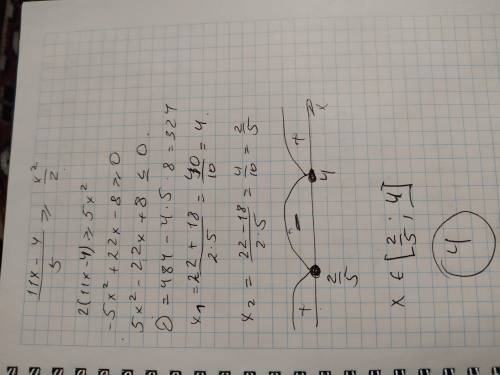 (11x - 4)/5 ≥ x²/2
2(11x-4) ≥ 5x²
-5x² + 22x - 8 ≥ 0
5x² - 22x + 8 ≤ 0.
D = 484 - 4·5·8 = 324
x₁ = (22 + 18)/(2·5) = 40/10 = 4.
x₂ = (22 - 18)/(2·5) = 4/10 = 2/5
+ - + x
2/5 4
x ∈ [2/5; 4]
4